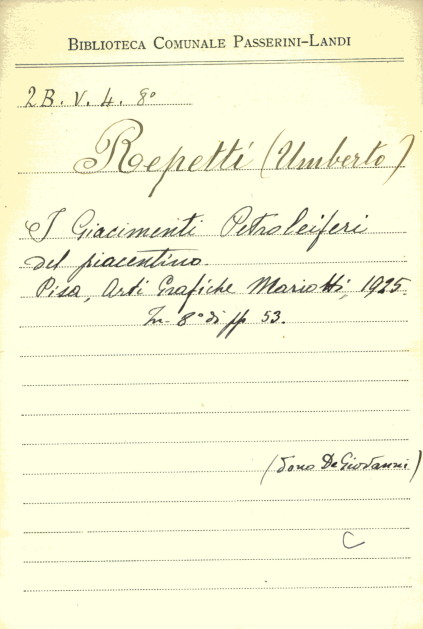 BIBLIOTECA COMUNALE PASSERINI-LANDI
2B. V. 4. 8°
Repetti (Umberto)
I Giacimenti Petroleiferi
del piacentino.
Pisa, Arti Grafiche Mariotti, 1925
In-8° di pp 53.
(dono De Giovanni)
C